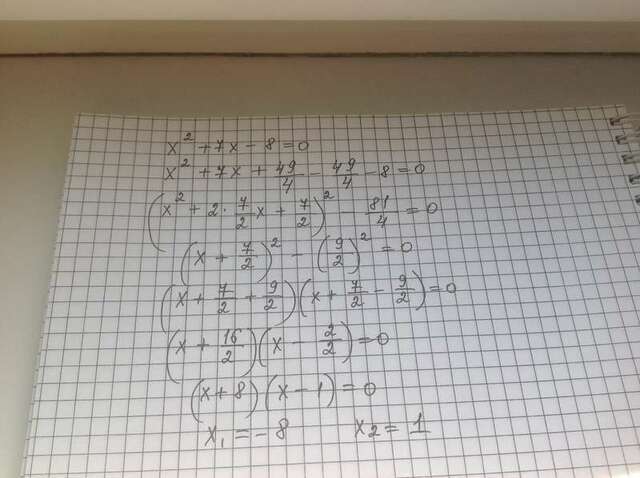 x² + 7x - 8 = 0
x² + 7x + 49/4 - 49/4 - 8 = 0
(x² + 2 · 7/2 x + 7/2)² - 81/4 = 0
(x + 7/2)² - (9/2)² = 0
(x + 7/2 + 9/2)(x + 7/2 - 9/2) = 0
(x + 16/2)(x - 2/2) = 0
(x + 8)(x - 1) = 0
x₁ = -8 x₂ = 1